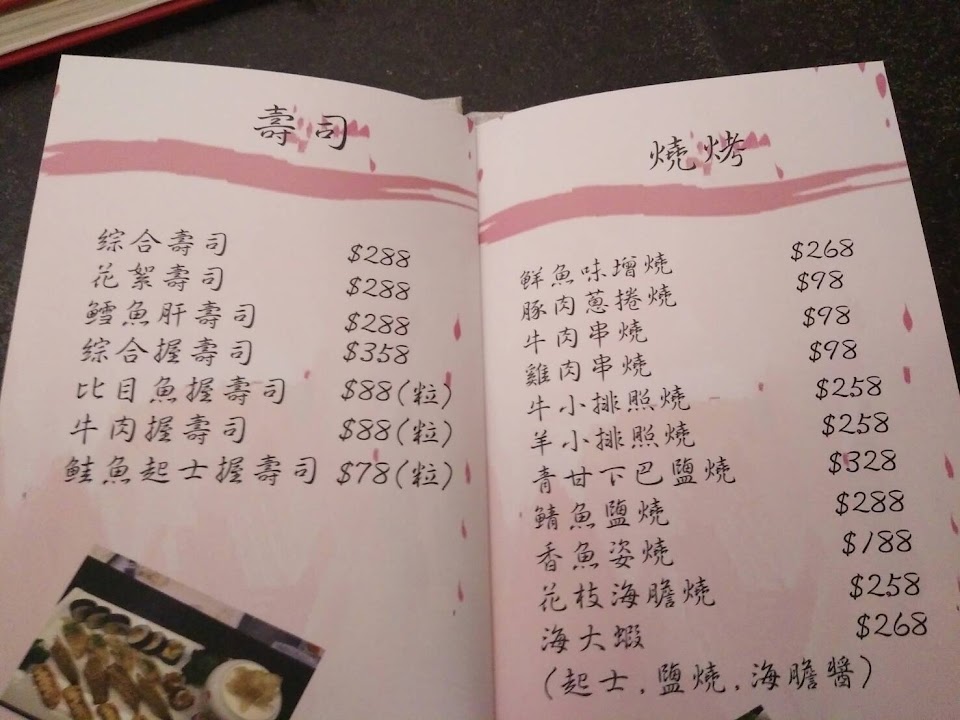 壽司
綜合壽司 $288
花絮壽司 $288
鱈魚肝壽司 $288
綜合握壽司 $358
比目魚握壽司 $88(粒)
牛肉握壽司 $88(粒)
鮭魚起士握壽司 $78(粒)
燒烤
鮮魚味增燒 $268
豚肉蔥捲燒 $98
牛肉串燒 $98
雞肉串燒 $98
牛小排照燒 $258
羊小排照燒 $258
青甘下巴鹽燒 $328
鯖魚鹽燒 $288
香魚姿燒 $188
花枝海膽燒 $258
海大蝦 $268
(起士,鹽燒,海膽醬)